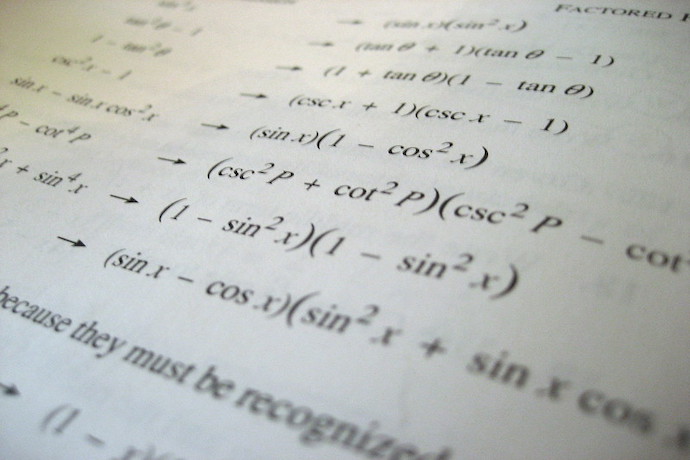 FACTORED
(sin x)(sin² x)
tan² θ − 1 → (tan θ + 1)(tan θ − 1)
1 − tan² θ → (1 + tan θ)(1 − tan θ)
csc² x − 1 → (csc x + 1)(csc x − 1)
sin x − sin x cos² x → (sin x)(1 − cos² x)
⁴ P − cot⁴ P → (csc² P + cot² P)(csc² P − cot
² x + sin⁴ x → (1 − sin² x)(1 − sin² x)
→ (sin x − cos x)(sin² x + sin x cos x
because they must be recognized
→ (1 −